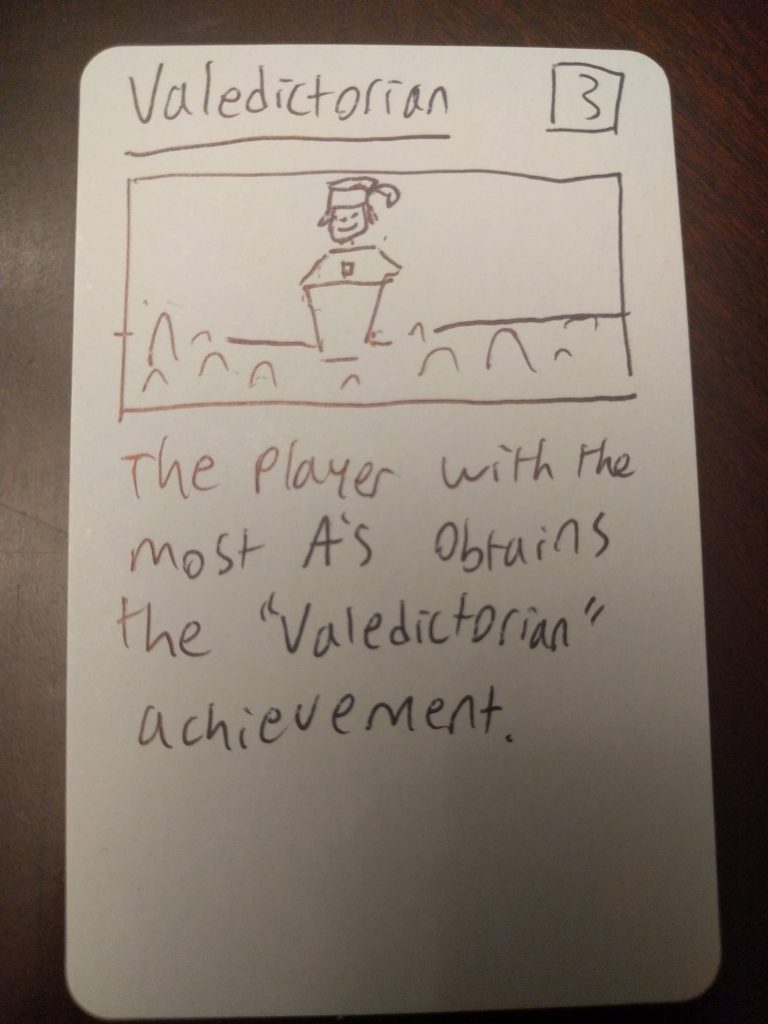 Valedictorian 3
The Player with the
most A's obtains
the "Valedictorian"
achievement.